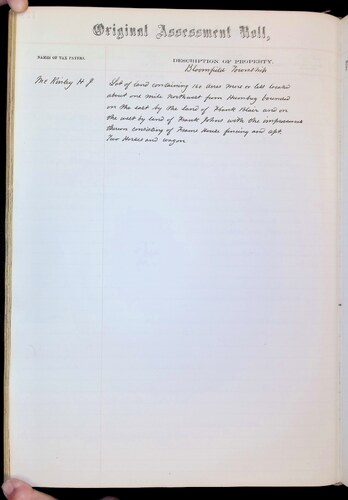 Original Assessment Roll,
NAMES OF TAX PAYERS.
DESCRIPTION OF PROPERTY.
Bloomfield Township
Mc Kinley H J
Lot of land containing 160 acres more or less located
about one mile Northwest from Humbug bounded
on the east by the land of Frank Blair and on
the west by land of Frank Johns with the improvements
thereon consisting of Frame House fencing and
Two Horses and wagon